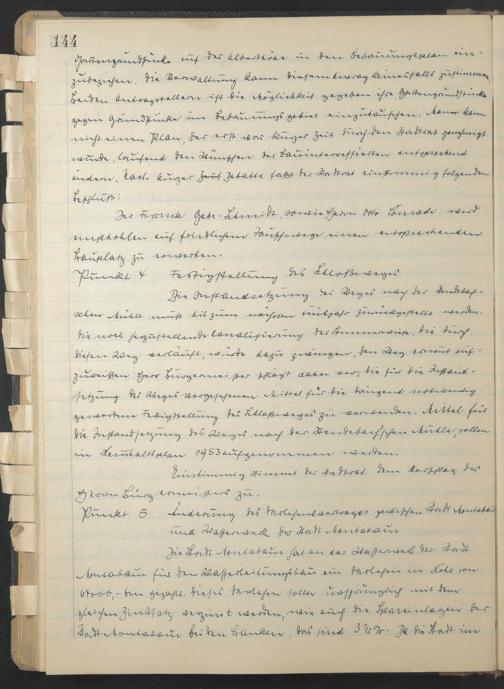 144
Gartengrundstücke auf der Alberthöhe in den Bebauungsplan ein-
zubeziehen. Die Verwaltung kann diesem Antrag keinesfalls zustimmen.
Beiden Antragstellern ist die Möglichkeit gegeben ihre Gartengrundstücke
gegen Grundstücke im Bebauungsgebiet einzutauschen. Man kann
nicht einen Plan, der erst vor kurzer Zeit durch den Stadtrat genehmigt
wurde, laufend den Wünschen der Bauinteressierten entsprechend
ändern. Nach kurzer Debatte faßt der Stadtrat einstimmig folgenden
Beschluß:
Der Firma Gebr. Schmidt, sowie Herrn Otto wird
empfohlen auf friedlichem Tauschwege einen entsprechenden
Bauplatz zu erwerben.
Punkt 4 Fertigstellung des Schloßweges
Die Instandsetzung des Weges nach der
schen Mühle muß bis zum nächsten Frühjahr zurückgestellt werden.
Die noch fertigzustellende Kanalisierung der, die durch
diesen Weg verläuft, würde dazu zwingen, den Weg erneut auf-
zureißen. Herr Bürgermeister schlägt daher vor, die für die Instand-
setzung des Weges vorgesehenen Mittel für die dringend notwendig
gewordene Fertigstellung des Schloßweges zu verwenden. Mittel für
die Instandsetzung des Weges nach der Mühle, sollen
im Haushaltsplan 1953 aufgenommen werden.
Einstimmig stimmt der Stadtrat dem Vorschlag des
Herrn Bürgermeisters zu.
Punkt 5 Änderung des Darlehensvertrages zwischen Stadt Montabaur
und Wasserwerk der Stadt Montabaur
Die Stadt Montabaur hat an das Wasserwerk der Stadt
Montabaur für den Wasserleitungsbau ein Darlehen in Höhe von
gezahlt. Dieses Darlehen sollte ursprünglich mit dem
gleichen Zinssatz verzinst werden, wie auch die Spareinlagen der
Stadt Montabaur bei den Banken, das sind 3 ½ %. Ist die Stadt im